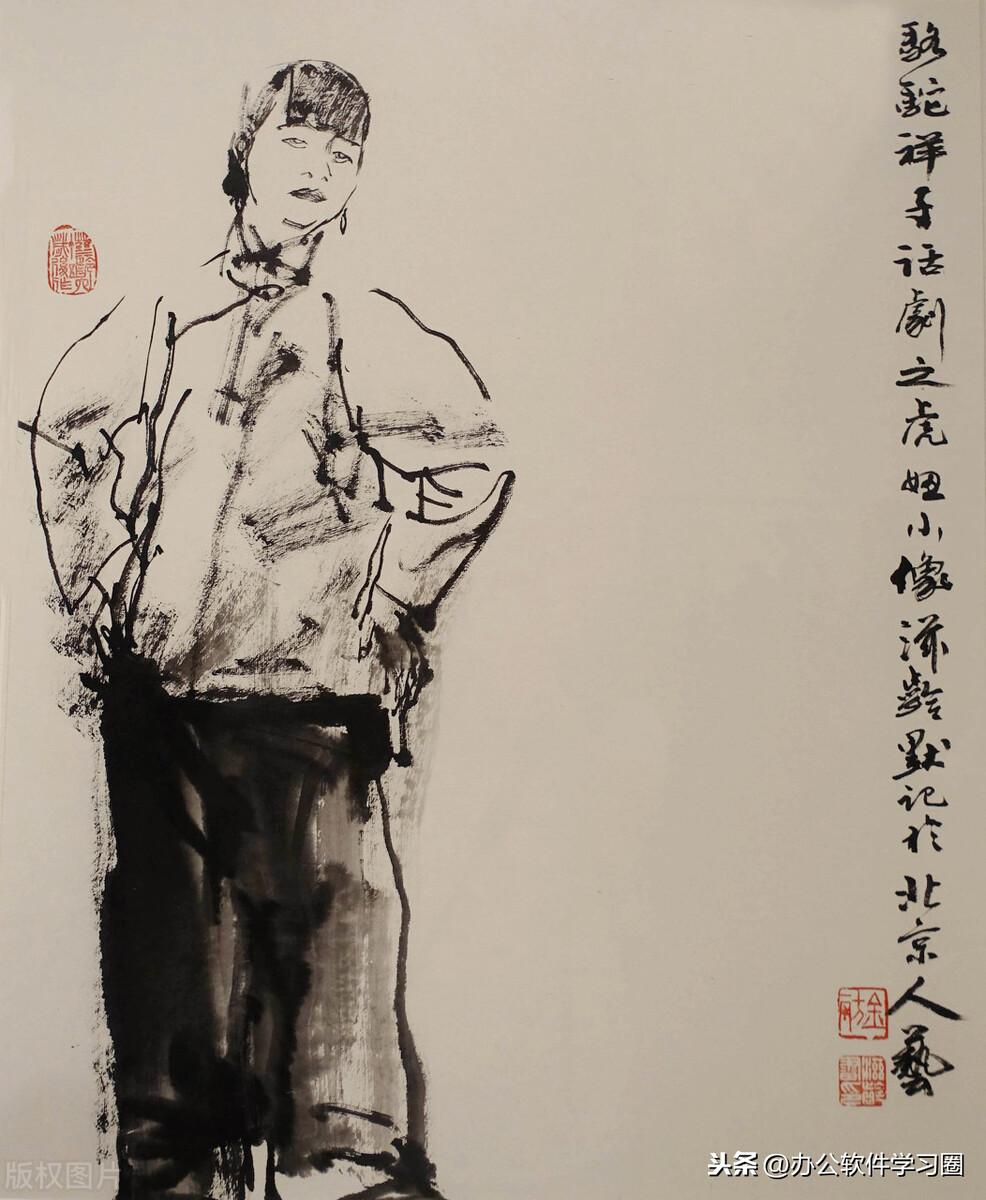 駱駝祥子話劇之虎妞小像滋齡默記於北京人藝
版权图片
头条 @办公软件学习圈